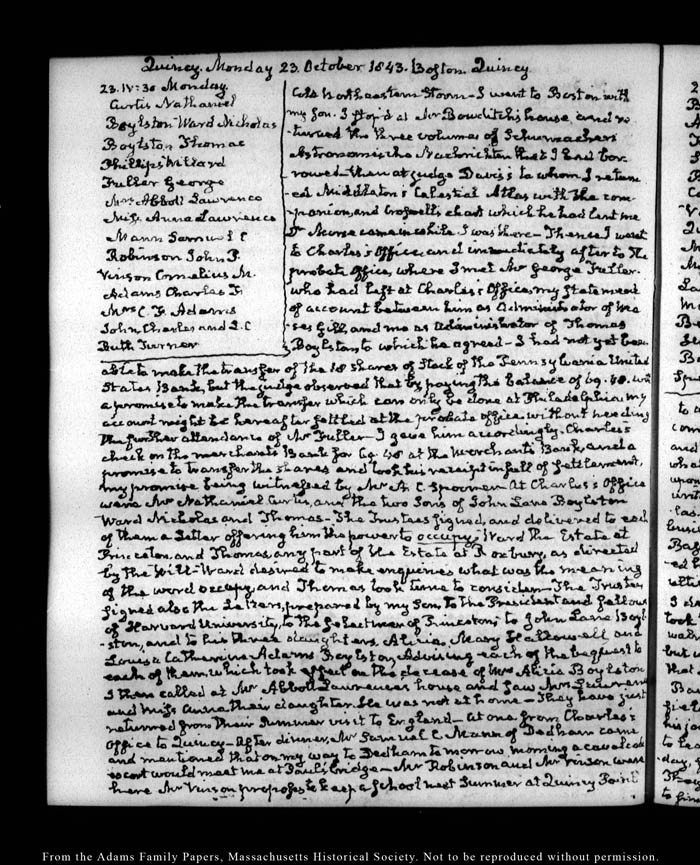 Quincy. Monday 23. October 1843. Boston. Quincy
23. IV:30 Monday.
Curtis Nathaniel
Boylston Ward Nicholas
Boylston Thomas
Phillips Willard
Fuller George
Mrs Abbott Lawrence
Miss Anna Lawrence
Mann Samuel C
Robinson John P.
Vinson Cornelius M.
Adams Charles F.
Mrs C. F. Adams
John Charles and I. C
Ruth Turner
Cold Northeastern Storm— I went to Boston with
my Son. I stop'd at Mr Bowditch's house and re
turned the three volumes of Schumacher's
Astronomische Nachrichten that I had bor-
rowed— then at judge Davis's to whom I return
ed Middleton's Celestial Atlas with the com-
panion, and Croswell's chart which he had lent me
Dr Nurse came in while I was there— Thence I went
to Charles's Office, and immediately after to the
probate Office, where I met Mr George Fuller.
who had left at Charles's Office my Statement
of account between him as Administrator of Mo
ses Gill, and me as Administrator of Thomas
Boylston, to which he agreed— I had not yet been
able to make the transfer of the 18 Shares of Stock of the Pennsylvania United
States Bank, but the judge observed that by paying the balance of 69.40. with
a promise to make the transfer which can only be done at Philadelphia my
account might be hereafter settled at the probate office without needing
the further attendance of Mr Fuller— I gave him accordingly Charles's
check on the merchants Bank for 69 40 at the Merchants Bank, and a
promise to transfer the shares and took his receipt in full of settlement,
my promise being witnessed by Mr A. C. Spooner— At Charles's Office
were Mr Nathaniel Curtis, and the two Sons of John Lane Boylston
Ward Nicholas and Thomas— The Trustees signed, and delivered to each
of them a Letter offering him the power to occupy, Ward the Estate at
Princeton, and Thomas, any part of the Estate at Roxbury, as directed
by the Will— Ward desired to make enquiries what was the meaning
of the word occupy, and Thomas took time to consider— The Trustees
signed also the Letters, prepared by my Son, to the President and fellows
of Harvard University, to the Selectmen of Princeton, to John Lane Boyl-
-ston, and to his three daughters, Alicia, Mary Hallowell and
Louisa Catherine Adams Boylston, Advising each of the bequest to
each of them, which took effect on the decease of Mrs Alicia Boylston
I then called at Mr Abbott Lawrence's house and saw Mrs Lawrence
and Miss Anna their daughter. He was not at home— They have just
returned from their Summer visit to England— At one from Charles's
Office to Quincy— After dinner, Mr Samuel C. Mann of Dedham came
and mentioned that on my way to Dedham to morrow morning a cavalcade
escort would meet me at Paul's bridge— Mr Robinson and Mr Vinson were
here Mr Vinson proposes to keep a School next Summer at Quincy Point
From the Adams Family Papers, Massachusetts Historical Society. Not to be reproduced without permission.